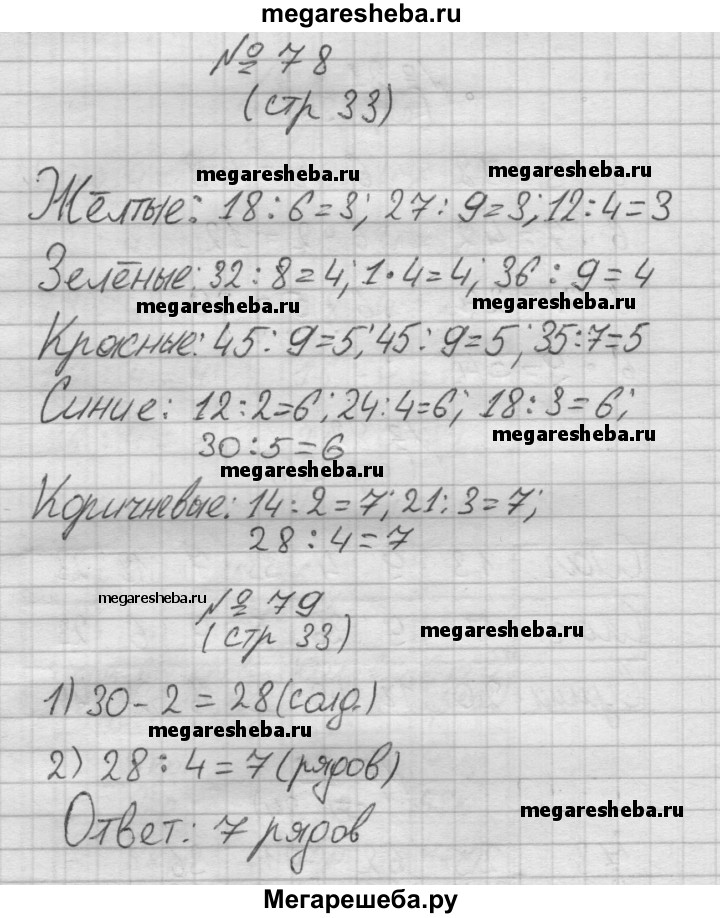 megaresheba.ru
№ 78
(стр 33)
megaresheba.ru megaresheba.ru
Жёлтые: 18 : 6 = 3; 27 : 9 = 3; 12 : 4 = 3
Зелёные: 32 : 8 = 4; 1 · 4 = 4; 36 : 9 = 4
megaresheba.ru megaresheba.ru
Красные: 45 : 9 = 5; 45 : 9 = 5; 35 : 7 = 5
Синие: 12 : 2 = 6; 24 : 4 = 6; 18 : 3 = 6;
megaresheba.ru
30 : 5 = 6
megaresheba.ru
Коричневые: 14 : 2 = 7; 21 : 3 = 7;
28 : 4 = 7
megaresheba.ru
№ 79
(стр 33)
megaresheba.ru
1) 30 - 2 = 28 (солд.)
megaresheba.ru
2) 28 : 4 = 7 (рядов)
Ответ: 7 рядов
megaresheba.ru
Мегарешеба.ру